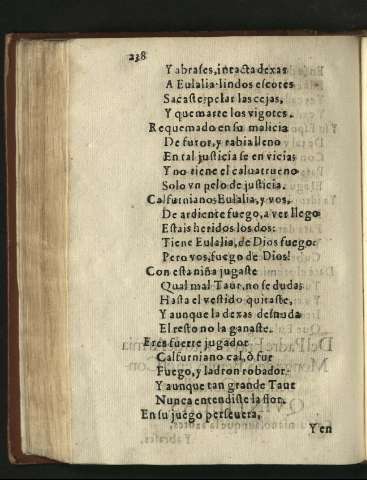 238
Y abrases, intacta dexas
A Eulalia: lindos escotes
Sacaste; pelar las cejas,
Y quemarte los vigotes.
Requemado en su malicia
De furor, y rabia lleno
En tal justicia se en vicias
Y no tiene el caluatrueno
Solo vn pelo de justicia.
Calfurnianos Eulalia, y vos,
De ardiente fuego, a ver llego
Estais heridos los dos:
Tiene Eulalia, de Dios fuego:
Pero vos, fuego de Dios!
Con esta niña jugaste
Qual mal Taur, no se dudas
Hasta el vestido quitaste,
Y aunque la dexas desnuda
El resto no la ganaste.
Eres fuerte jugador
Calfurniano cal, ò fur
Fuego, y ladron robador:
Y aunque tan grande Taur
Nunca entendiste la flor.
En su juego perseuera,
Y en